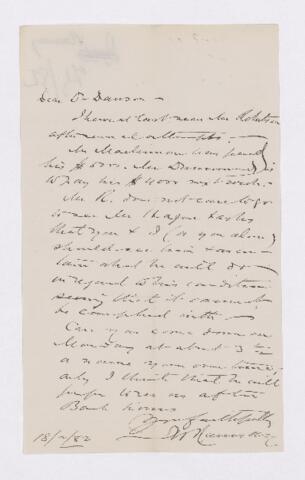 Dear Dr Dawson –
I have at last seen Mr Robertson
after several attempts. –
his $5000. Mr
to pay his $4000 next week. –
Mr R. does not care to go
to see Mr
that you & I (or you alone)
should see him & ascer-
tain what he will do
in regard to his condition
seeing that it cannot
be complied with. –
Can you come down on
Monday at about 3
a name your own time,
only I think that he will
prefer to see us after
Bank hours
Yours faithfully
18/ /82